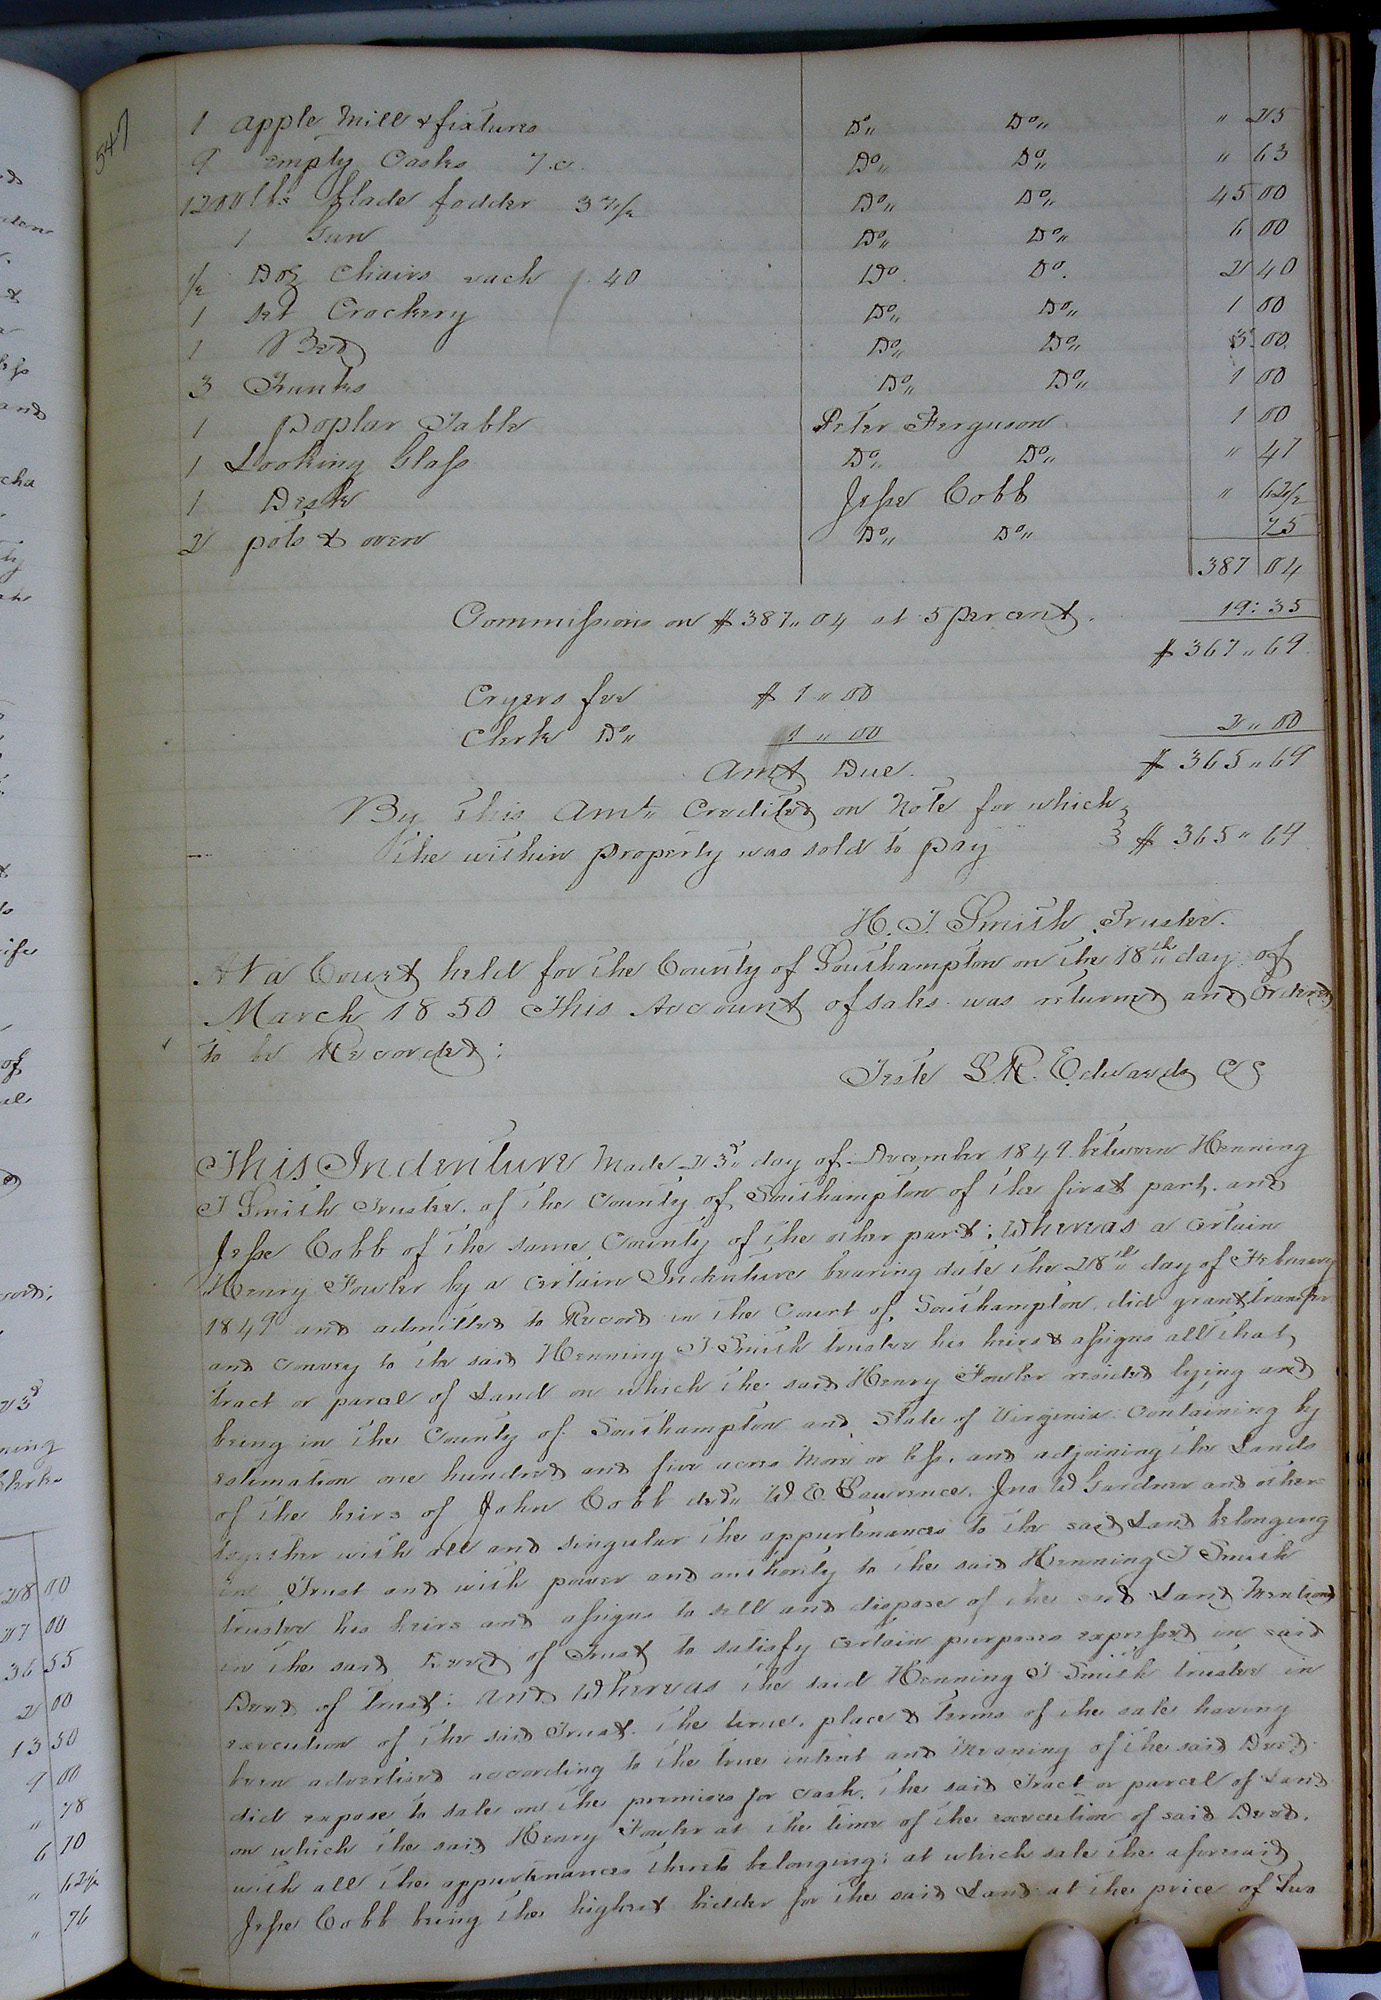 547
1 apple Mill & fixtures Do,, Do,, " 25
9 empty Casks 7.c. Do,, Do,, " 63
1200 lbs blade fodder 3 75/ Do,, Do,, 45 00
1 Gun Do,, Do,, 6 00
1/2 Doz Chairs each 40 Do. Do. 2 40
1 set Crockery Do,, Do,, 1 00
1 Bed Do,, Do,, 3 00
3 Trunks Do,, Do,, 1 00
1 poplar Table Peter Ferguson 1 00
1 Looking Glass Do,, Do,, " 47
1 Desk Jesse Cobb " 62 1/2
2 pots & oven Do,, Do,, 75
387 04
Commissions on $387,,04 at 5 per cent. 19:35
$367,,69
Cryers fee $1,,00
Clerk Do,, 1,,00 2,,00
Amt Due. $365,,69
By this Amt,, Credited on Note for which
the within property was sold to pay } $365,,69
H. J. Smith Trustee.
At a Court held for the County of Southampton on the 18th day of
March 1850 This Account of sales was returned and Ordered
to be Recorded:
Teste L. R. Edwards CC
This Indenture Made 23d,, day of December 1849 between Henning
J Smith Trustee of the County of Southampton of the first part and
Jesse Cobb of the same County of the other part; Whereas a certain
Henry Fowler by a certain Indenture bearing date the 28th day of February
1849 and admitted to Record in the Court of Southampton did grant, transfer
and convey to the said Henning J Smith trustee his heirs & assigns all that
tract or parcel of Land on which the said Henry Fowler resided lying and
being in the County of Southampton and State of Virginia containing by
estimation one hundred and five acres More or less, and adjoining the Lands
of the heirs of John Cobb decd,, W E Lawrence, Jno W Gardner and others
together with all and singular the appurtenances to the said Land belonging
in Trust and with power and authority to the said Henning J Smith
trustee his heirs and assigns to sell and dispose of the said Land Mentioned
in the said Deed of Trust to satisfy certain purposes expressed in said
Deed of trust: and Whereas the said Henning J Smith trustee in
execution of the said Trust. the time, place & terms of the sale having
been advertised according to the true intent and Meaning of the said Deed
did expose to sale on the premises for cash, the said Tract or parcel of Land
on which the said Henry Fowler at the time of the execution of said Deed.
with all the appurtenances thereto belonging; at which sale the aforesaid
Jesse Cobb being the highest bidder for the said Land at the price of Two
28 00
27 00
36 55
2 00
13 50
9 00
" 78
6 10
" 62 1/2
" 76